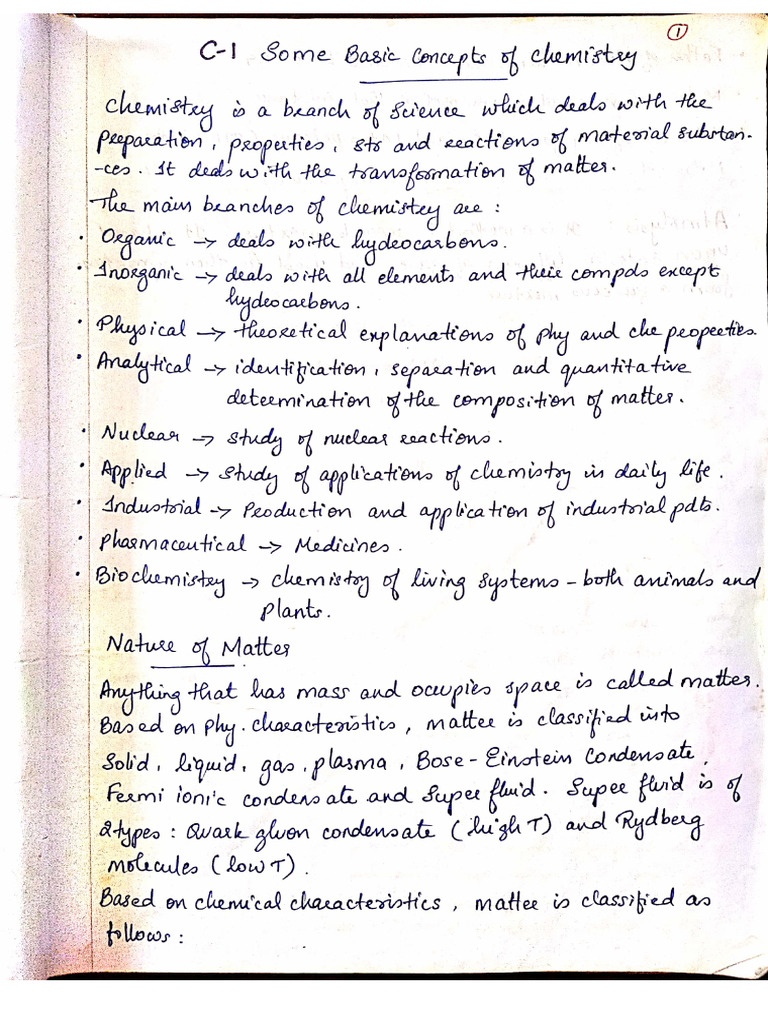 1
C-1 Some Basic Concepts of Chemistry
Chemistry is a branch of science which deals with the
preparation, properties, str and reactions of material substan-
-ces. It deals with the transformation of matter.
The main branches of chemistry are :
• Organic → deals with hydrocarbons.
• Inorganic → deals with all elements and their compds except
hydrocarbons.
• Physical → theoretical explanations of phy and che properties.
• Analytical → identification, separation and quantitative
determination of the composition of matter.
• Nuclear → study of nuclear reactions.
• Applied → study of applications of chemistry in daily life.
• Industrial → Production and application of industrial pdts.
• Pharmaceutical → Medicines.
• Biochemistry → chemistry of living systems - both animals and
plants.
Nature of Matter
Anything that has mass and occupies space is called matter.
Based on phy. characteristics, matter is classified into
Solid, liquid, gas, plasma, Bose-Einstein Condensate,
Fermi ionic condensate and Super fluid. Super fluid is of
2 types : Quark gluon condensate (high T) and Rydberg
molecules (low T).
Based on chemical characteristics, matter is classified as
follows :